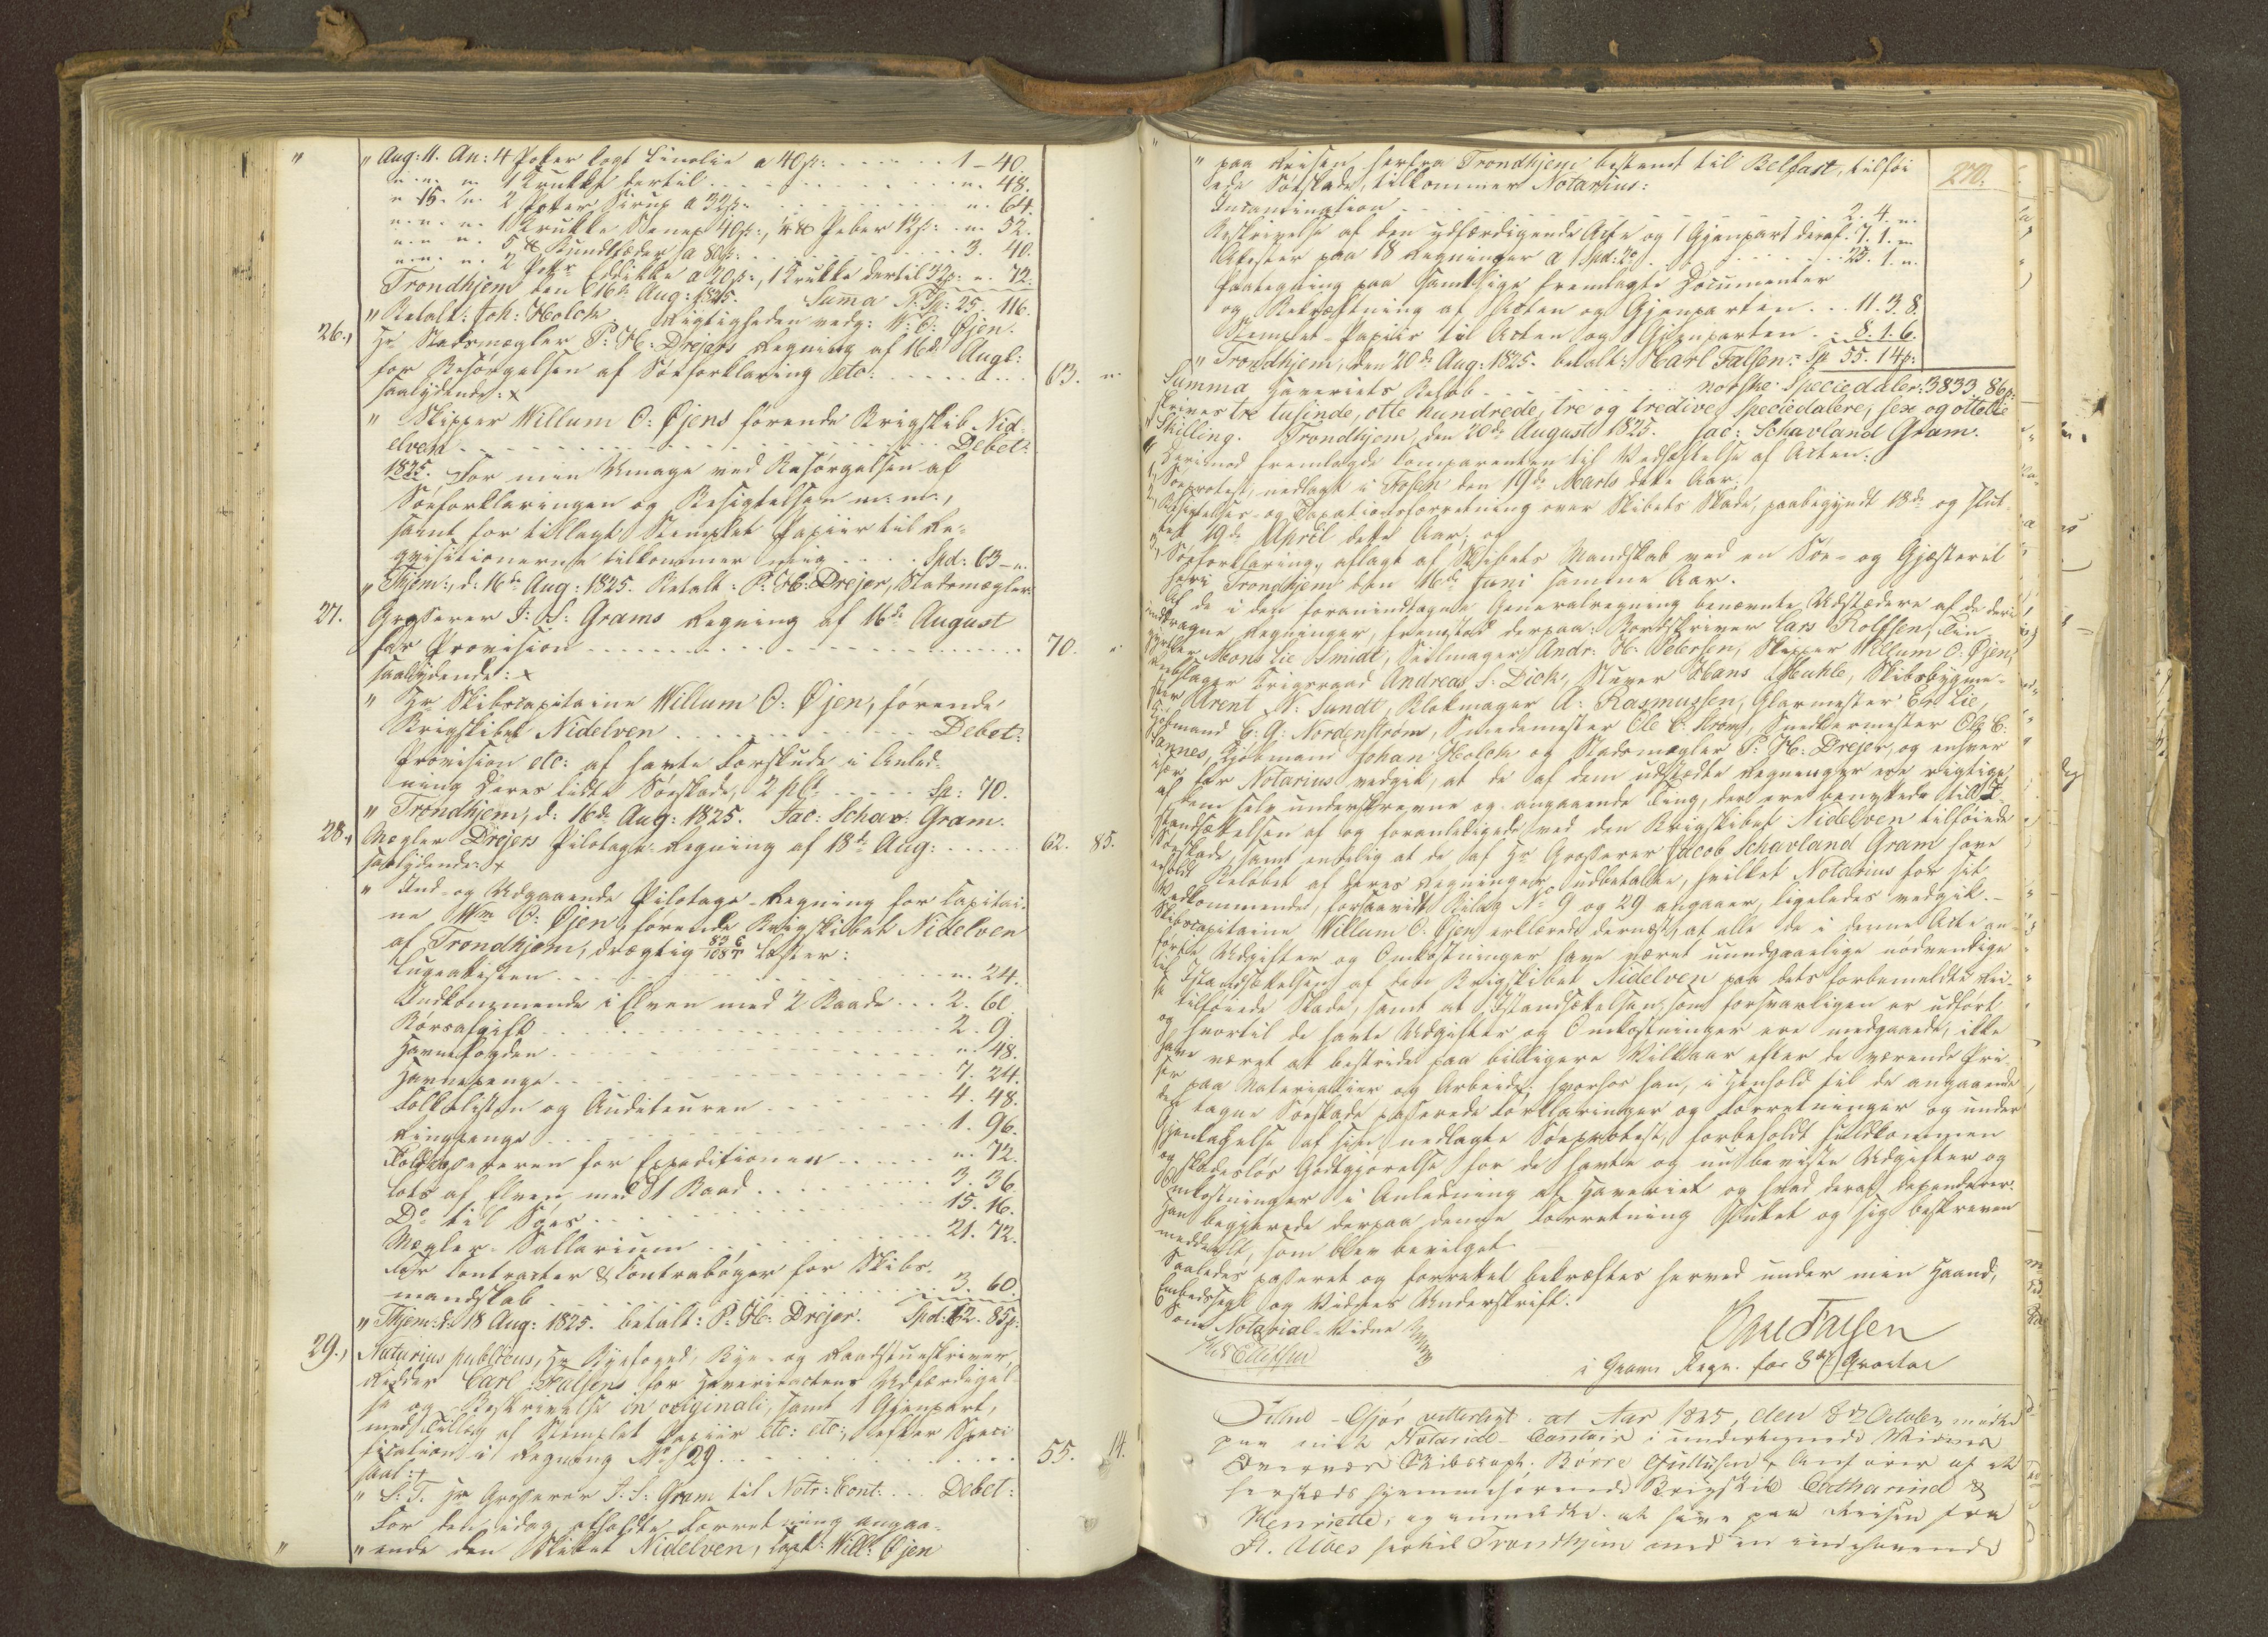 " Aug: 11. An: 4 Potter kogt Linolie a 40 s: . . . 1 - 40.
" " " 1 Krukke dertil . . . " 48.
" 15. " 2 Potter Sirup a 32 s: . . . " 64.
" " " 1 Krukke Senep 40 s:, ¼ ℔ Peber 12 s: " 52.
" " " 5 ℔ a 80 s: . . . 3. 40.
" " " 2 Potter Eddikke a 20 s:, 1 Krukke dertil 32 s: " 72.
Trondhjem den 16de Aug: 1825. Summa Sp: 25. 116.
" Betalt: Joh: Holck. Rigtigheden vedg: W: O: Øjen.
26., Hr Stadsmægler P: H: Drejers Regning af 16de Augt:
for Besørgelsen af Søeforklaring etc: . . . 63. "
saalydende: x
" Skipper Willum O: Øjens førende Brigskib Nid-
elven . . . Debet:
1825. For min Umage ved Besørgelsen af
Søeforklaringen og Besigtelsen m: m:,
samt for tillagt Stemplet Papiir til Re-
qvisitionerne tilkommer mig . . . Spd: 63 - "
" Thjem:, d: 16de Aug: 1825. Betalt: P: H: Drejer, Stadsmægler
27. Grosserer J: S: Grams Regning af 16de August
for Provision . . . 70. "
saalydende: x
" Hr Skibscapitaine Willum O: Øjen, førende
Brigskibet Nidelven . . . Debet:
Provision etc: af havte Forskude i Anled-
ning Deres lidte Søeskade, 2 pCt . . . Sp: 70.
" Trondhjem, d: 16de Aug: 1825. Jac: Schav: Gram.
28., Mægler Drejers Pilotage-Regning af 18de Aug: . . . 62. 85.
saalydende: x
" Ind- og Udgaaende Pilotage-Regning for Capitai-
ne Wm O: Øjen, førende Brigskibet Nidelven
af Trondhjem, drægtig 83 Læster:
. . . " 24.
Indkommende i Elven med 2 Baade . . . 2. 60
Børsafgift . . . 2. 9.
Havnefogden . . . " 48.
Havnepenge . . . 7. 24.
Tolkelisten og Auditeuren . . . 4. 48.
Ringpenge . . . 1. 96.
for Expeditionen . . . " 72.
Lods af Elven med 1 Baad . . . 3. 36.
Do til Søes . . . 15. 16.
Mægler-Sallarium . . . 21. 72.
For Contracter & Contrabøger for Skibs-
mandskab . . . 3. 60.
" Thjem: d: 18 Aug: 1825. betalt: P: H: Drejer. Spd: 62. 85 s:
29., Notarius publicus, Hr Byefoged, Bye- og Raadstueskriver,
Ridder Carl Falsens for Havariactens Udfærdigel-
se og Beskrivelse in originali, samt 1 Gjenpart,
med Tillæg af Stemplet Papiir etc: etc:, efter Speci-
fication i Regning No 29 . . . 55. 14.
saal: x
" S: T: Hr Grosserer J: S: Gram til Notr: Cont: . . . Debet:
For den idag afholdte Forretning angaa-
" ende den Skibet Nidelven, Capt: Will: Øjen
270.
" paa Reisen herfra Trondhjem bestemt til Belfast, tilføi-
ede Søeskade, tilkommer Notarius:
. . . 2. 4. "
Beskrivelse af den udfærdigende Acte og 1 Gjenpart deraf. 7. 1. "
Attester paa 18 Regninger a 1 Spd: . . . 25. 1. "
Paategning paa samtlige fremlagte Documenter
og Bekræftning af Acten og Gjenparten . . . 11. 3. 8.
Stemplet-Papiir til Acten og Gjenparten . . . 8. 1. 6.
" Trondhjem, den 20de Aug: 1825. betalt: Carl Falsen. Sp 55. 14 s:
Summa Haveriets Beløb . . . norske Speciedaler: 3833. 86 s:
skrives tre tusinde, otte hundrede, tre og tredive Speciedalere, sex og ottetie
Skilling. Trondhjem, den 20de August 1825. Jac: Schavland Gram.
Herimod fremlagde Comparenten til Vedhæftelse af Acten:
1, Søeprotest, nedlagt i Fosen den 19de Marts dette Aar.
2, Besigtelses- og Taxationsforretning over Skibets Skade, paabegyndt 18de og slut-
tet 19de April dette Aar; og
3, Søeforklaring, aflagt af Skibets Mandskab ved en Søe- og Gjæsteret
her i Trondhjem den 16de Juni samme Aar.
Af de i den foranindtagne Generalregning benævnte Udstædere af de deri
indtagne Regninger, fremstod derpaa: Bordskriver Lars Rolfsen, Tin-
Mons Lie Smidt, Seilmager Andr: H: Petersen, Skipper Willum O: Øjen,
Krigsraad Andreas S: Dick, Stuver Hans Muhle, Skibsbygme-
ster Arent N: Sundt, Blokmager A: Rasmussen, Glarmester Er: Lie,
Kjøbmand C: G: Nordenstrøm, Smedemester Ole C: Krom, Snedkermester Ole C:
Sannes, Kjøbmand Johan Holck og Stadsmægler P: H: Drejer, og enhver
især for Notarius vedgik, at de af dem udstædte Regninger ere rigtige,
af dem selv underskrevne og angaaende Ting, der ere benyttede till I-
standsættelsen af og foranledigede ved den Brigskibet Nidelven tilføiede
Søeskade, samt endelig at de af Hr Grosserer Jacob Schavland Gram have
erholdt Beløbet af deres Regninger udbetalte, hvilket Notarius for sit
Vedkommende, forsaavidt Bilag No 9 og 29 angaaer, ligeledes vedgik. -
Skibscapitaine Willum O: Øjen erklærede dernæst, at alle de i denne Acte an-
førte Udgifter og Omkostninger have været uundgaaelige nødvendige
til Istandsættelsen af den Brigskibet Nidelven paa dets forbemeldte Rei-
se tilføiede Skade, samt at Istandsættelsen, som forsvarligen er udført,
og hvortil de havte Udgifter og Omkostninger ere medgaaede, ikke
have været at bestride paa billigere Vilkaar efter de værende Pri-
ser paa Materialier og Arbeide; hvorhos han, i Henhold til de angaaende
den tagne Søeskade passerede Forklaringer og Forretninger og under
Gjentagelse af sin nedlagte Søeprotest, forbeholdt fuldkommen
og skadesløs Godtgjørelse for de havte og nu beviste Udgifter og
Omkostninger i Anledning af Haveriet og hvad deraf dependerer.
Han begjærede derpaa denne Forretning sluttet og sig beskreven
meddeelt, som blev bevilget.
Saaledes passeret og forrettet bekræftes herved under min Haand,
Embedssegl og Vidnes Underskrift.
Som Notarial-Vidne
Carl Falsen
i Grams Regn. for 3die Qvartal
Gjør vitterligt: at Aar 1825, den 8de October mødte
paa mit Notarial-Contoir i undertegnede Vidners
Overvær Skibscapt. Børre Gullusen Anfører af et
herstæds hjemmehørende Brigskib Catharina &
Henriette, og anmeldte at have paa Reisen fra
St. Ubes hertil Trondhjem med en indehavende